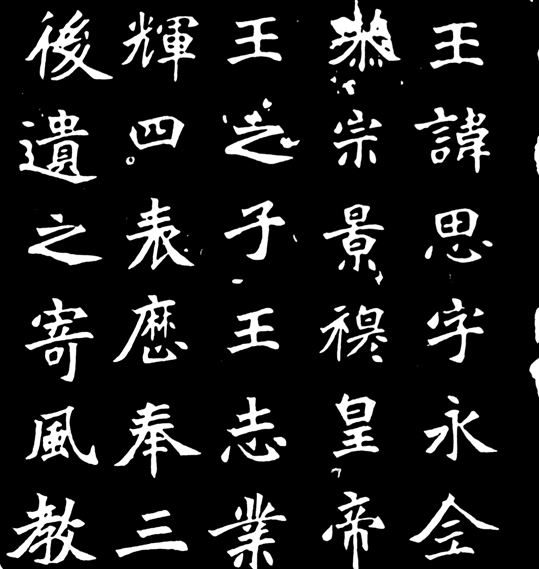 王諱思字永全
恭宗景穆皇帝
王之子王志業
輝四表歷奉三
後遺之寄風教